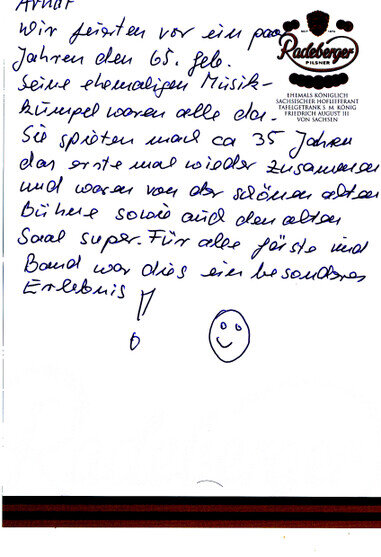 Arndt
Wir feierten vor ein paar
Jahren den 65. geb.
Seine ehemaligen Musik-
kumpel waren alle da.
Sie spielten nach ca 35 Jahren
das erste mal wieder zusammen
und waren von der schönen alten
Bühne sowie auch den alten
Saal super. Für alle Gäste und
Band war dies ein besonderes
Erlebnis!
Radeberger
PILSNER
EHEMALS KÖNIGLICH
SÄCHSISCHER HOFLIEFERANT
TAFELGETRÄNK S. M. KÖNIG
FRIEDRICH AUGUST III
VON SACHSEN